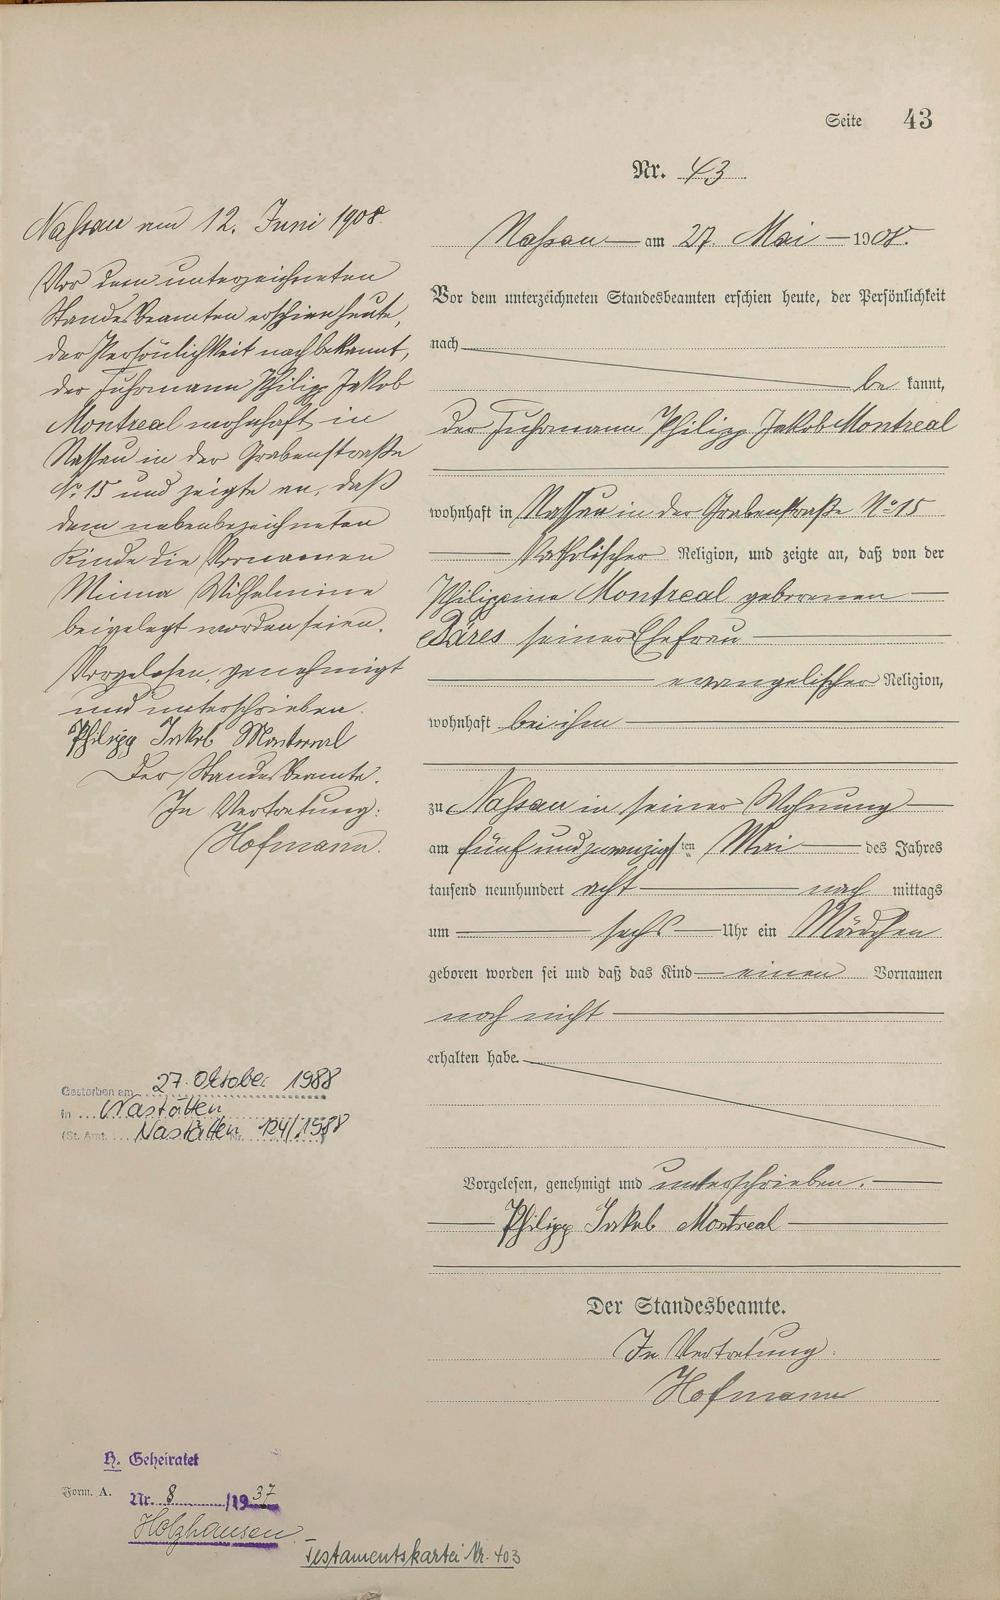 Seite 43
Nr. 43
Nassau am 12. Juni 1908.
Vor dem unterzeichneten
Standesbeamten erschien heute,
der Persönlichkeit nach bekannt,
der Fuhrmann Philipp Jakob
Montreal wohnhaft in
Nassau in der Grabenstraße
No 15 und zeigte an, daß
dem nebenbezeichneten
Kinde die Vornamen
Minna Wilhelmine
beigelegt worden seien.
Vorgelesen, genehmigt
und unterschrieben.
Philipp Jakob Montreal
Der Standesbeamte.
In Vertretung:
Hofmann.
Nassau am 27. Mai 1908.
Vor dem unterzeichneten Standesbeamten erschien heute, der Persönlichkeit
nach
be kannt,
der Fuhrmann Philipp Jakob Montreal
wohnhaft in Nassau in der Grabenstraße No 15
katholischer Religion, und zeigte an, daß von der
Philippine Montreal geborenen
seiner Ehefrau
evangelischer Religion,
wohnhaft bei ihm
zu Nassau in seiner Wohnung
am fünf und zwanzigsten Mai des Jahres
tausend neunhundert acht nach mittags
um sechs Uhr ein Mädchen
geboren worden sei und daß das Kind einen Vornamen
noch nicht
erhalten habe.
Vorgelesen, genehmigt und unterschrieben.
Philipp Jakob Montreal
Der Standesbeamte.
In Vertretung:
Hofmann
Gestorben am 27. Oktober 1988
in Nastätten
(St. Amt. Nastätten Nr. 124/1988
H. Geheiratet
Form. A. Nr. 8 /1937
Holzhausen
Testamentskartei Nr. 403